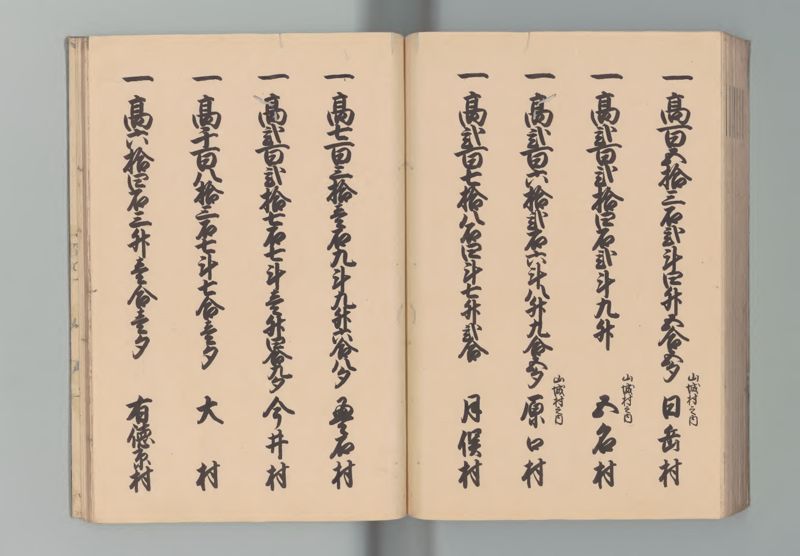 一 高百五拾三石弐斗四升五合五夕 山城村之内 日岳村
一 高弐百弐拾四石弐斗九升 山城村之内 五名村
一 高弐百六拾弐石六斗八升九合五夕 山城村之内 原口村
一 高弐百七拾八石四斗七升弐合 月俣村
一 高七百三拾壱石九斗九升六合八夕 石村
一 高弐百弐拾七石七斗壱升四合九夕 今井村
一 高千百八拾三石七斗七合壱夕 大村
一 高六拾四石三升壱合壱夕 有徳原村